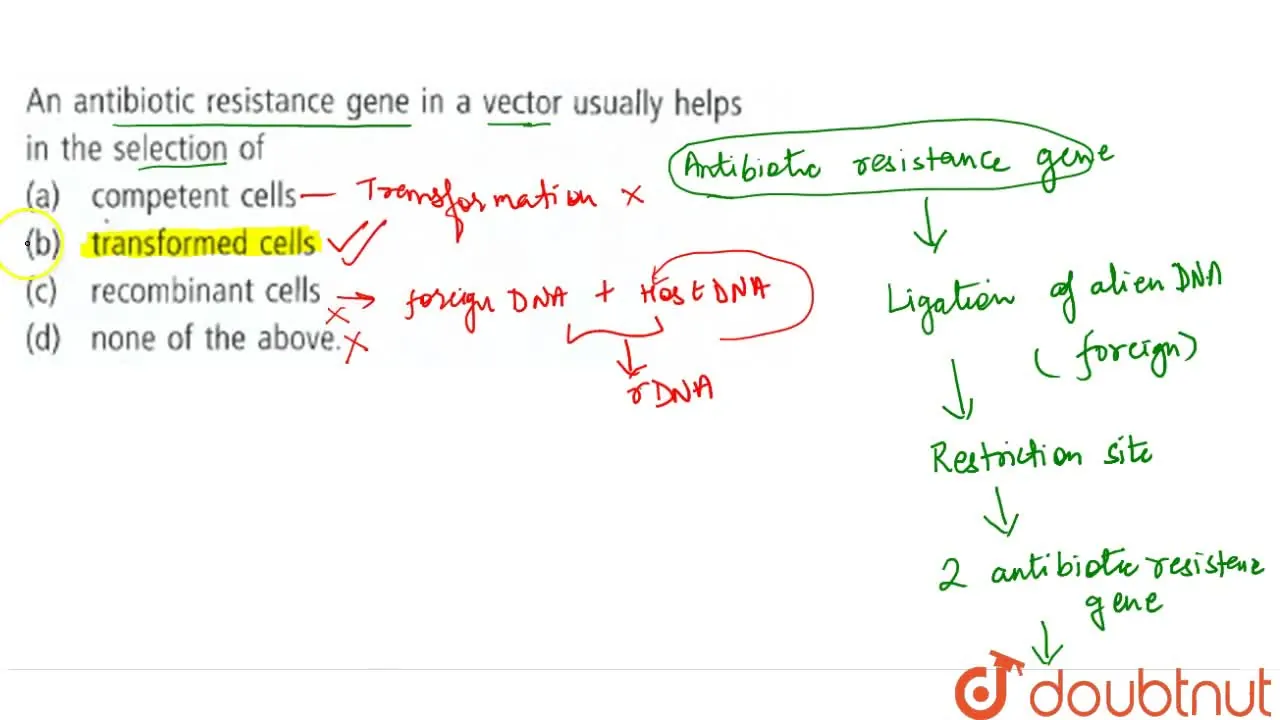 An antibiotic resistance gene in a vector usually helps
in the selection of
(a) competent cells — Transformation ×
(b) transformed cells ✓✓
(c) recombinant cells → foreign DNA + Host DNA
×
(d) none of the above. ×
rDNA
Antibiotic resistance gene
↓
Ligation of alien DNA
(foreign)
↓
Restriction site
↓
2 antibiotic resistenc
gene
↓
doubtnut